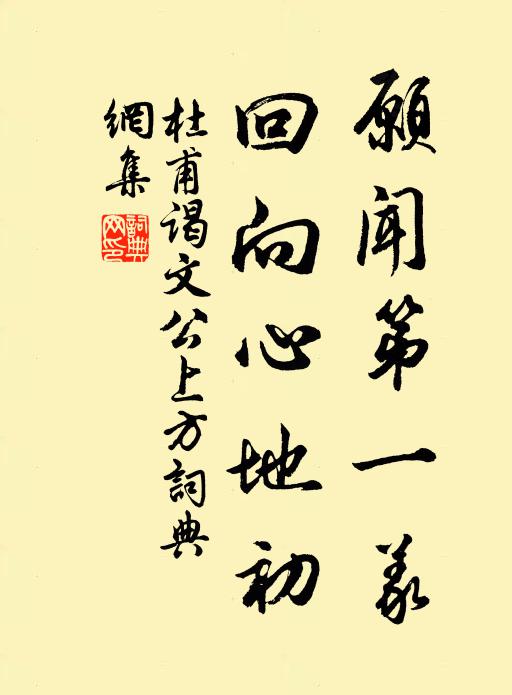 願聞第一義
回向心地初
杜甫謁文公上方詞典
網集
詞典
网印